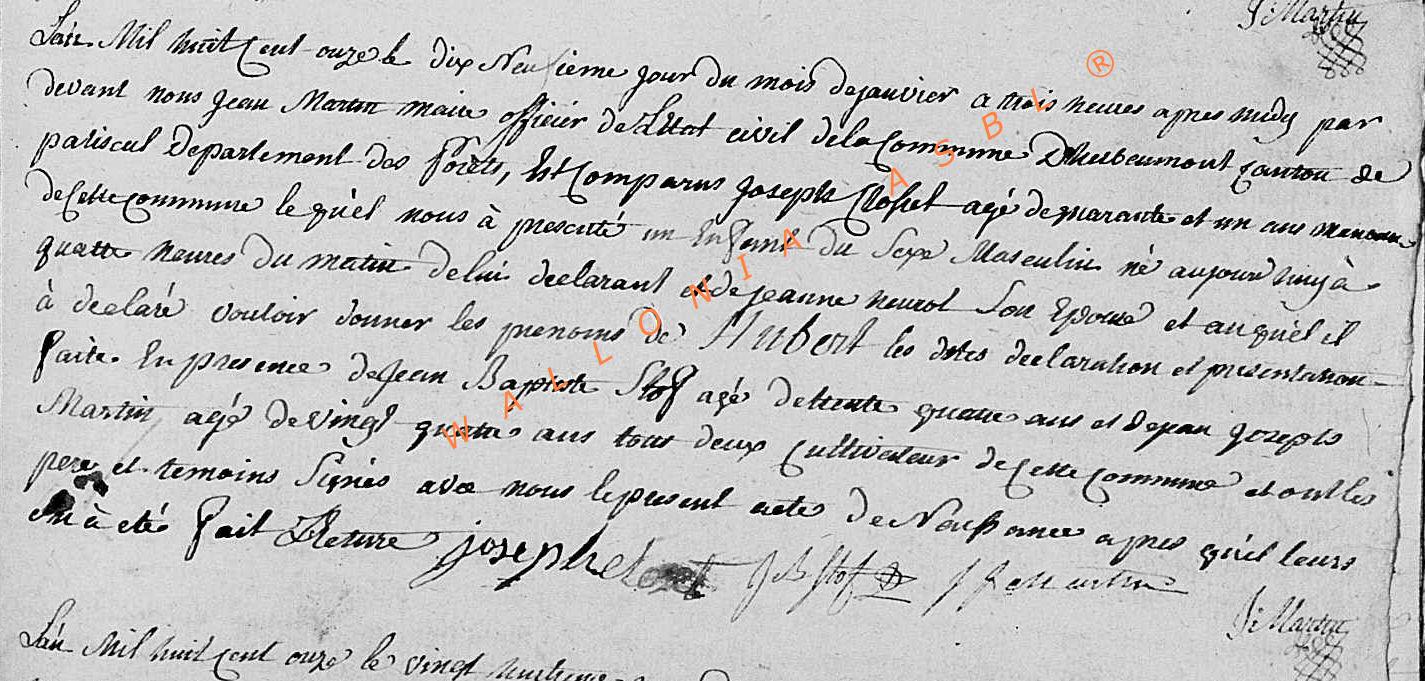 J: Martin
L'án Mil huit Cent onze le dix Neufieme jour du mois de janvier a trois heures apres midy par
devant nous Jean Martin maire officier de L'Etat civil de la Commune D'herbeumont Canton de
paliseul Departement des forêts, Est Comparus Joseph Closset agé de quarante et un ans
de Cette commune lequ'el nous à presenté un Enfant du Sexe Masculin né aujourd'huÿ à
quatte heures du matin de lui declarant et de jeanne heurot Son Epouse et auqu'el il
à declaré vouloir donner les prenoms de Hubert les dites declaration et presentation
faite En presence de Jean Baptiste Stof agé de trente quatre ans et de jean Joseph
Martin agé de vingt quattre ans tous deux Cultivateur de Cette Commune et ont les
pere et temoins Signés avec nous le present acte de Naissance apres qu'il leurs
en à eté fait Lecture joseph closet J B Stof J J Martin
J: Martin
L'án Mil huit Cent onze le vingt huitieme
WALLONIA ASBL ®